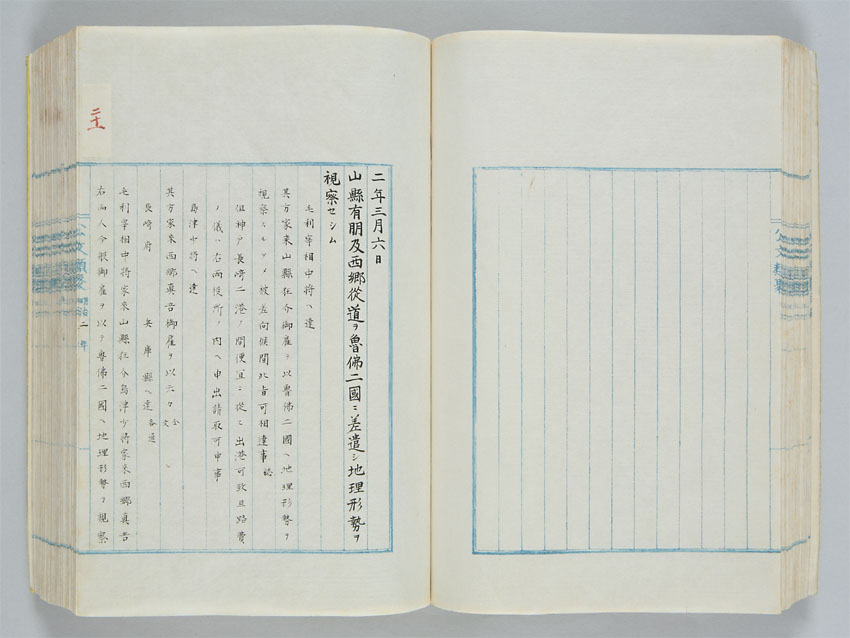 二十一
二年三月六日
山縣有朋及西郷從道ヲ魯佛二國ニ差遣シ地理形勢ヲ
視察セシム
毛利宰相中将ヘ達
其方家来山縣狂介御雇ヲ以魯佛二國ヘ地理形勢ヲ
視察シ被差向候間此旨可相達事
但神戸長崎二港ノ間便宜ニ從ヒ出港可致且路費
ノ儀ハ右両役所ノ内ヘ申出請取可申事
島津少将ヘ達
其方家来西郷真吾御雇ヲ以云々 全文
長崎府 兵庫縣ヘ達 各通
毛利宰相中将家来山縣狂介島津少将家来西郷真吾
右両人今般御雇ヲ以テ魯佛二國ヘ地理形勢ヲ視察
公文録 明治二年